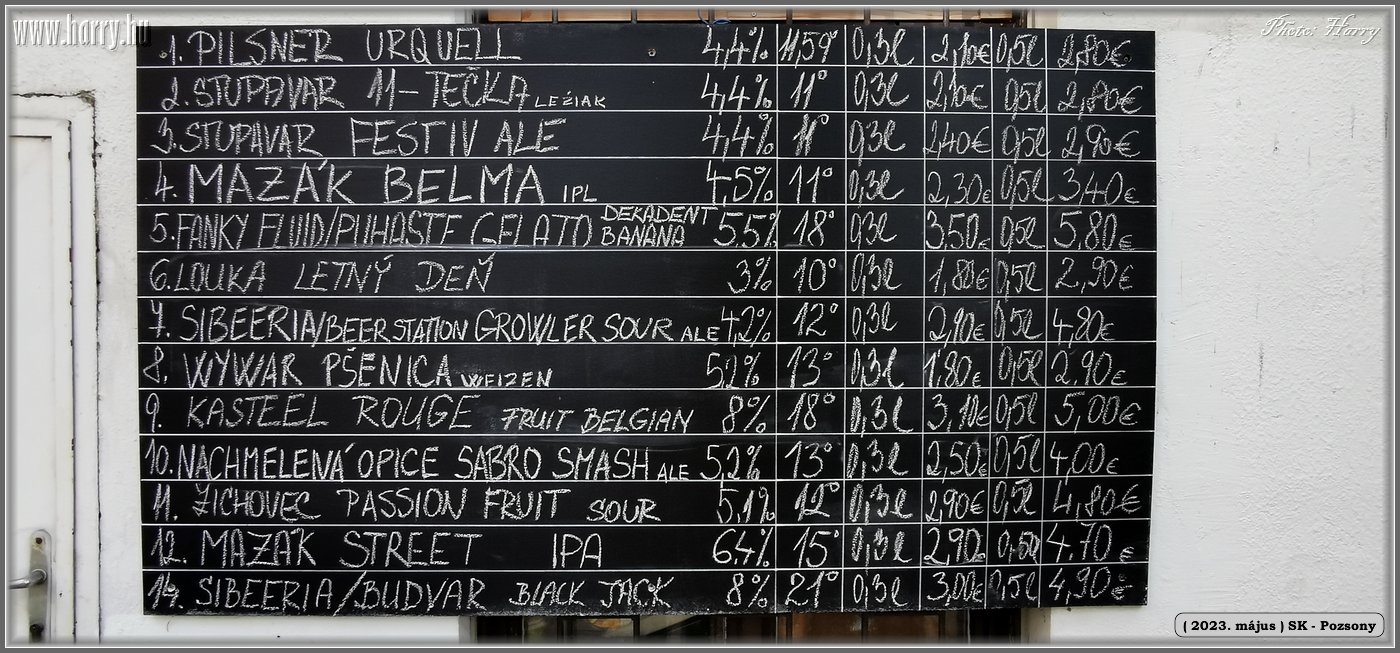 www.harry.hu
Photo: Harry
1. PILSNER URQUELL 4,4% 11,59° 0,3l 2,10€ 0,5l 2,80€
2. STUPAVAR 11-TEČKA LEŽIAK 4,4% 11° 0,3l 2,10€ 0,5l 2,80€
3. STUPAVAR FESTIV ALE 4,4% 11° 0,3l 2,40€ 0,5l 2,90€
4. MAZÁK BELMA IPL 4,5% 11° 0,3l 2,30€ 0,5l 3,40€
5. FANKY FLUID/PUHASTE GELATO DEKADENT BANANA 5,5% 18° 0,3l 3,50€ 0,5l 5,80€
6. LOUKA LETNÝ DEŇ 3% 10° 0,3l 1,80€ 0,5l 2,90€
7. SIBEERIA/BEERSTATION GROWLER SOUR ALE 4,2% 12° 0,3l 2,90€ 0,5l 4,80€
8. WYWAR PŠENICA WEIZEN 5,2% 13° 0,3l 1,80€ 0,5l 2.90€
9. KASTEEL ROUGE FRUIT BELGIAN 8% 18° 0,3l 3,10€ 0,5l 5,00€
10. NACHMELENÁ OPICE SABRO SMASH ALE 5,2% 13° 0,3l 2,50€ 0,5l 4,00€
11. ZICHOVEC PASSION FRUIT SOUR 5,1% 12° 0,3l 2,90€ 0,5l 4,80€
12. MAZÁK STREET IPA 6,4% 15° 0,3l 2,90€ 0,5l 4.70€
14. SIBEERIA/BUDVAR BLACK JACK 8% 21° 0,3l 3,00€ 0,5l 4,90€
( 2023. május ) SK - Pozsony